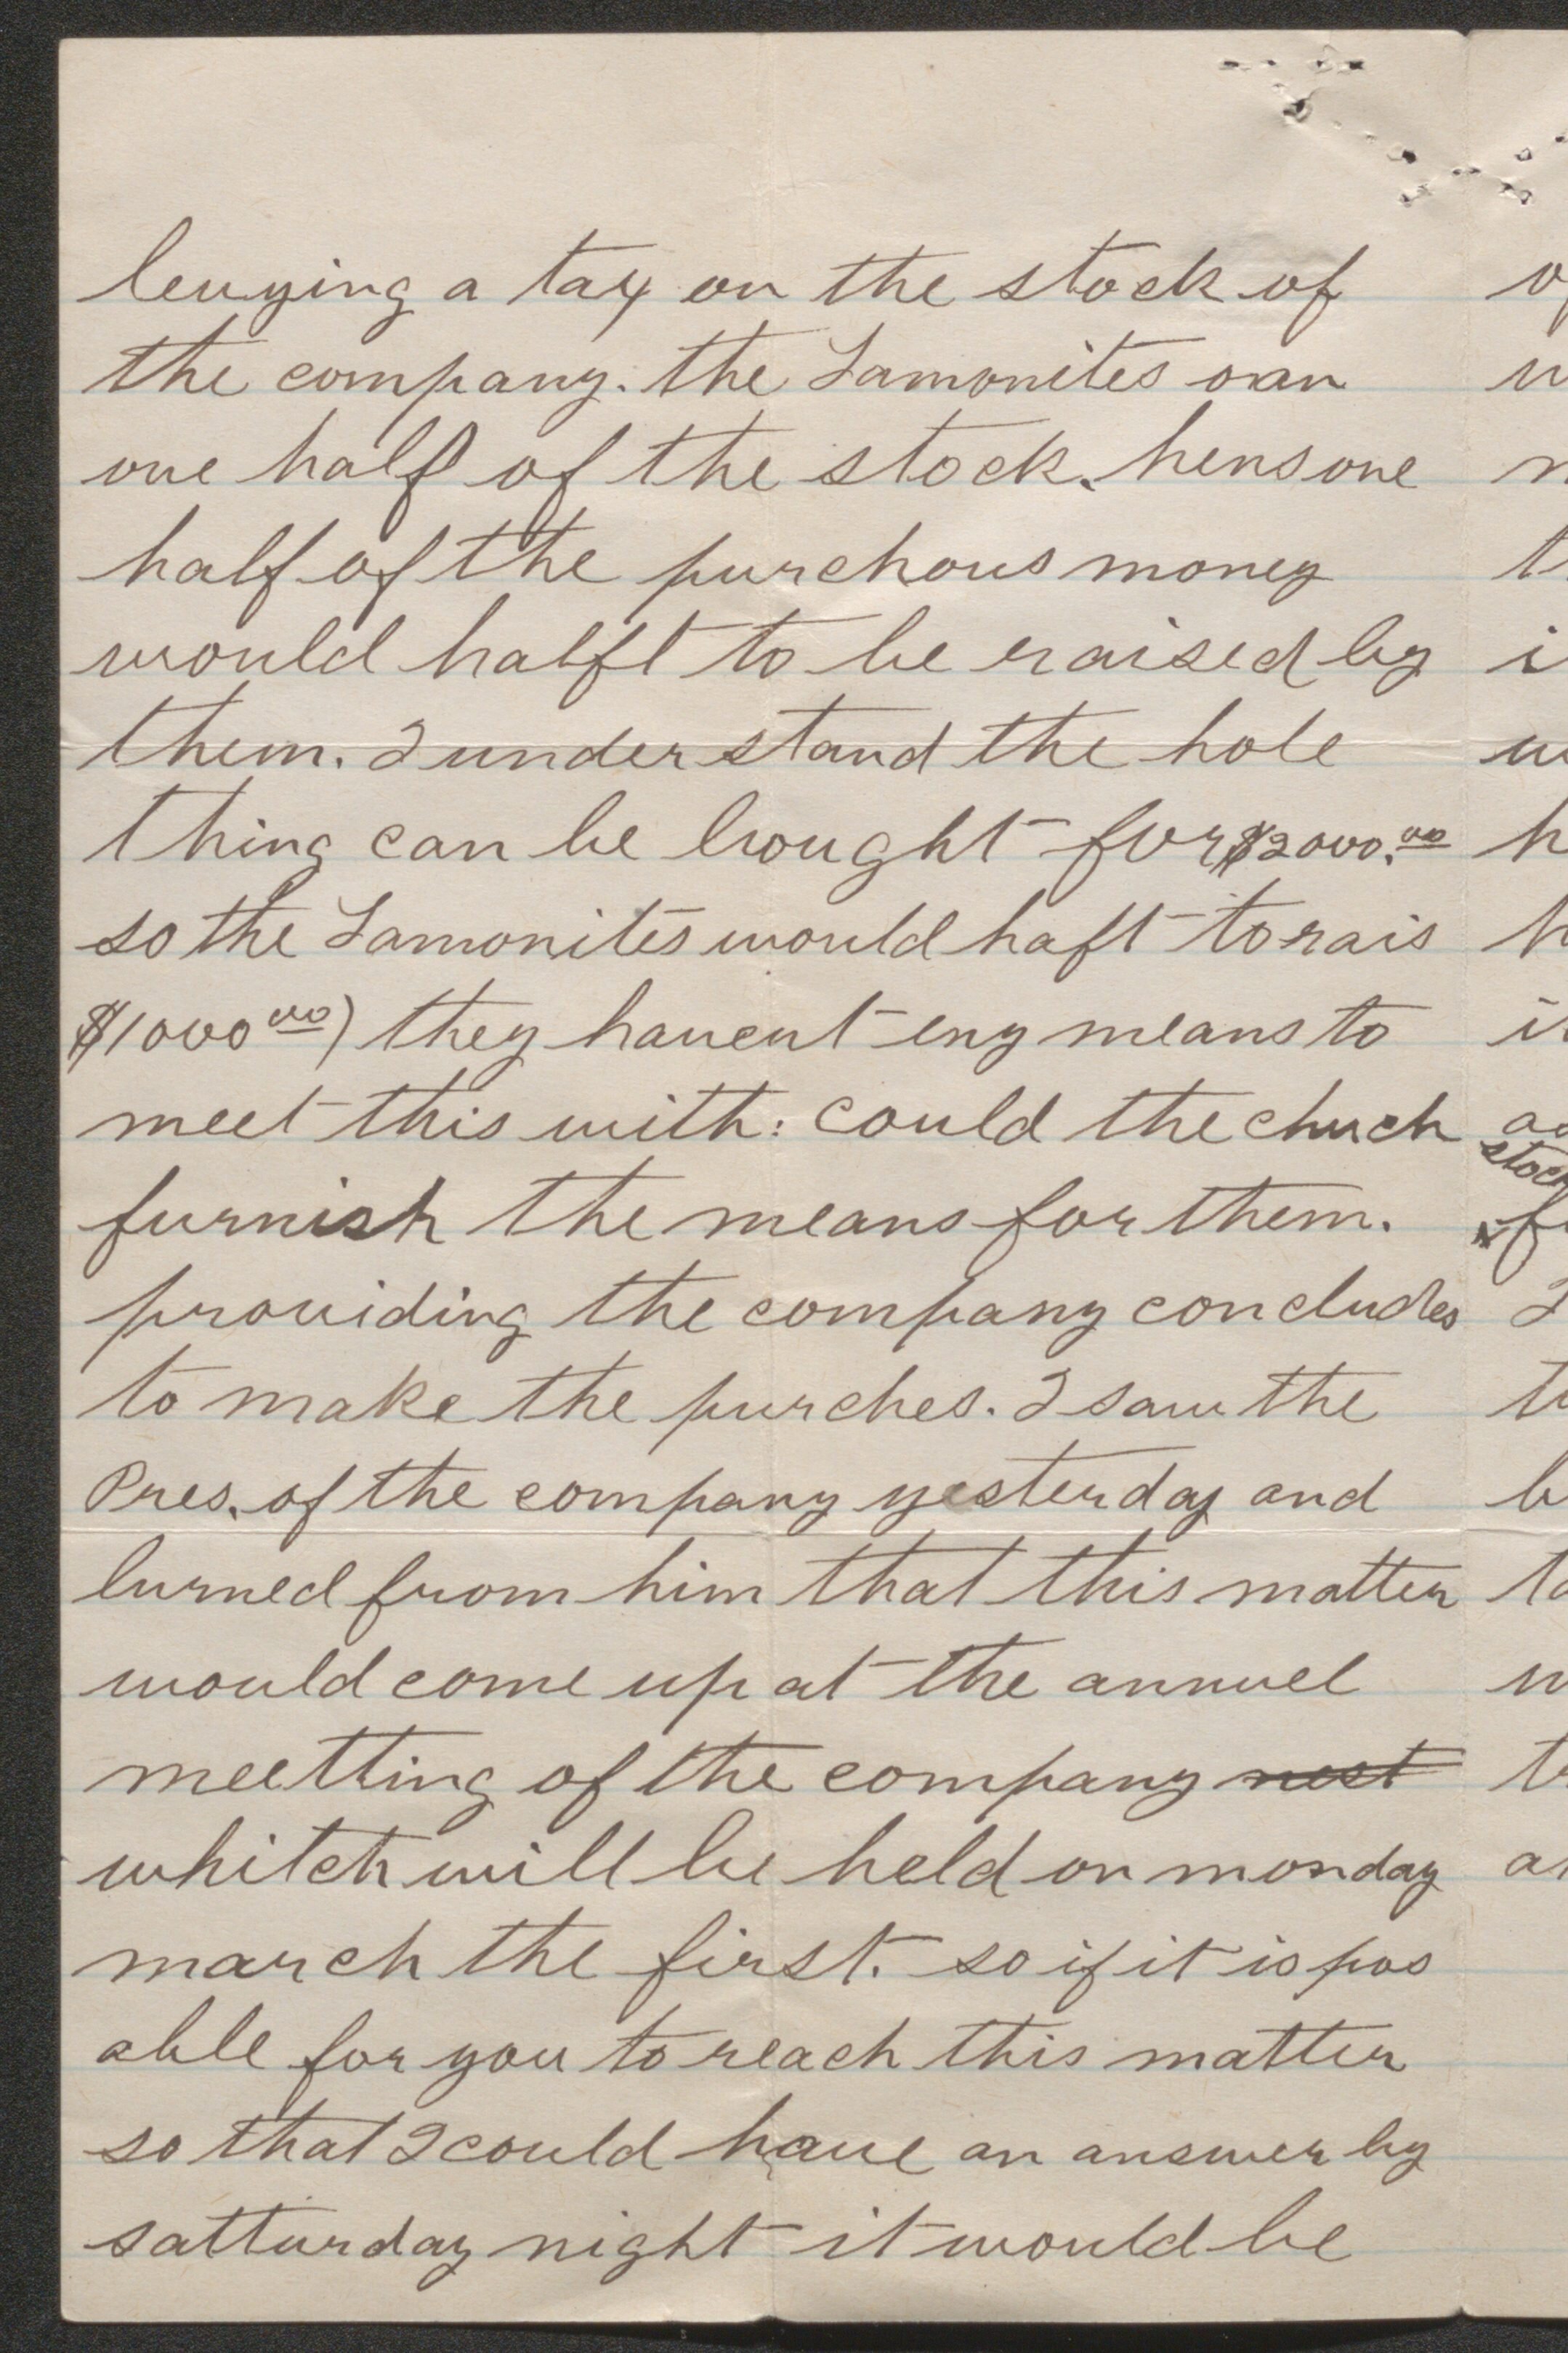 levying a tax on the stock of
the company. the Lamonites oan
one half of the stock. hens one
half of the purchous money
would halft to be raised by
them. I understand the hole
thing can be bought for $2000.00
so the Lamonites would haft to rais
$1000 00) they havent eny means to
meet this with: could the chuch
furnish the means for them.
providing the company concludes
to make the purches. I saw the
Pres. of the company yesterday and
lurned from him that this matter
would come up at the annuel
meetting of the company nest
whitch will be held on monday
march the first. so if it is pos
able for you to reach this matter
so that I could have an answer by
satturday night it would be